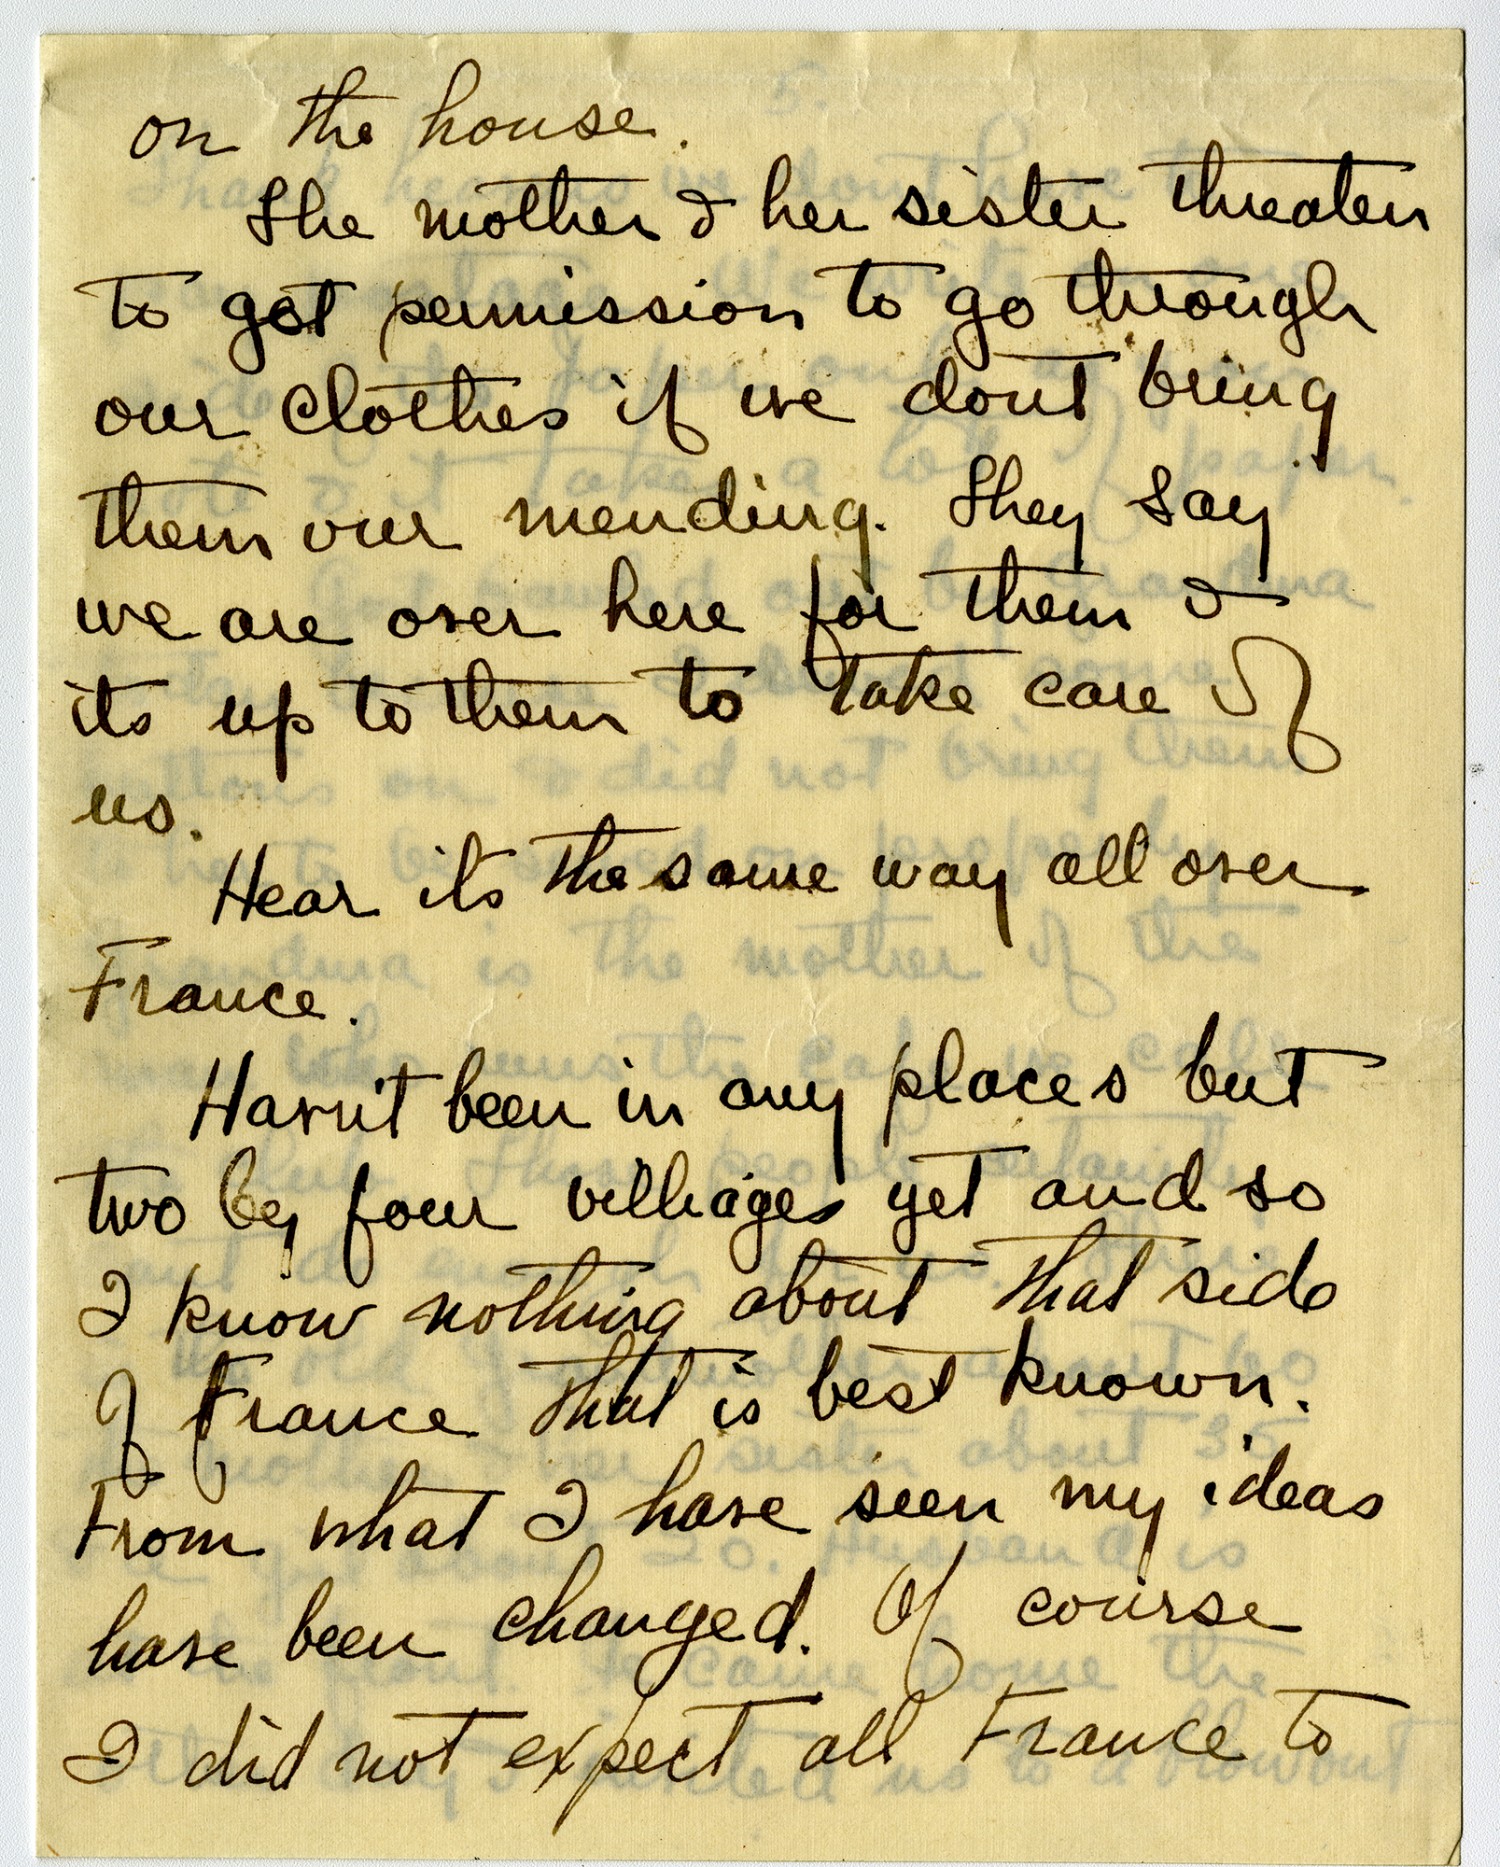 on the house.
The mother & her sister threaten
to get permission to go through
our clothes if we dont bring
them our mending. They say
we are over here for them &
its up to them to take care of
us.
Hear its the same way all over
France.
Havn't been in any places but
two by four villiages yet and so
I know nothing about that side
of France that is best known.
From what I have seen my ideas
have been changed. Of course
I did not expect all France to